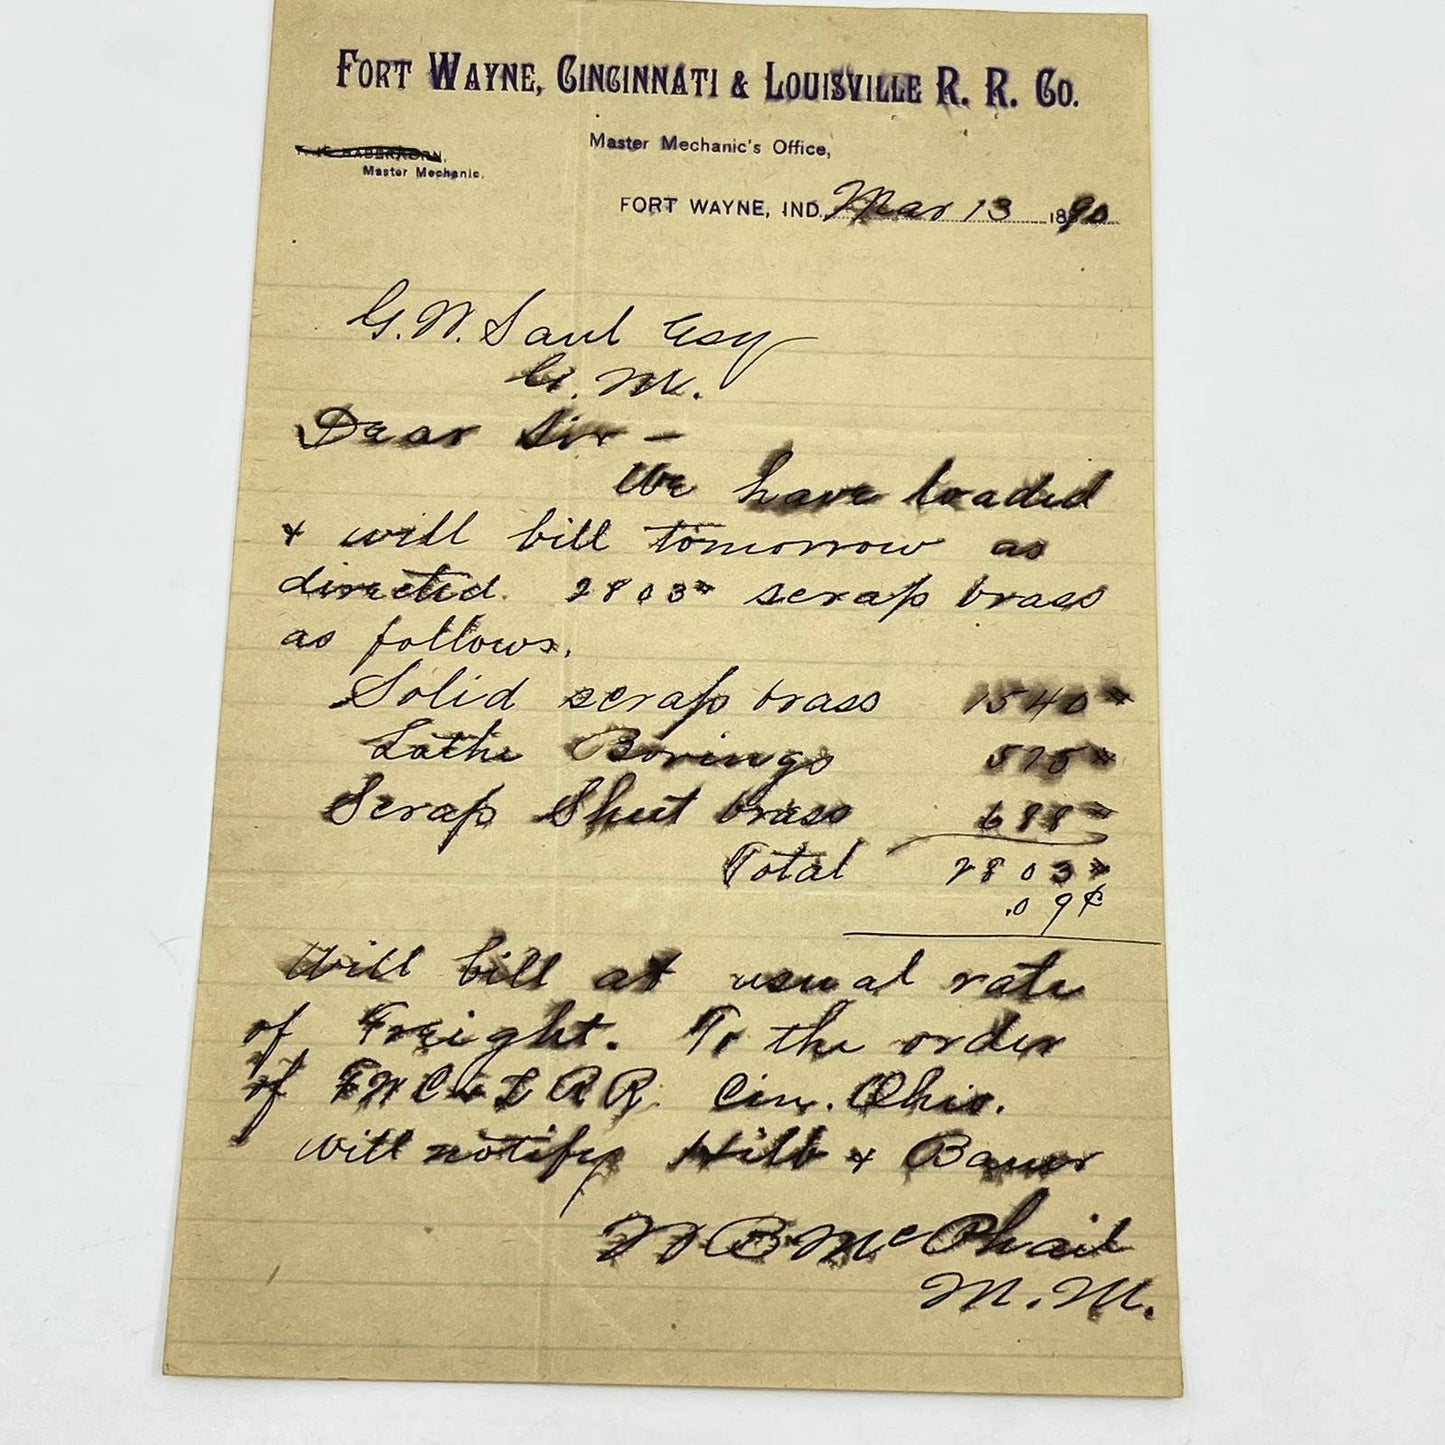 FORT WAYNE, CINCINNATI & LOUISVILLE R. R. CO.
Master Mechanic's Office,
HABERKORN,
Master Mechanic.
FORT WAYNE, IND. Mar 13 1890
G. W. Saul Esq
G. M.
Dear Sir –
We have loaded
& will bill tomorrow as
directed. 2803# scrap brass
as follows.
Solid scrap brass 1540#
Lathe Borings 575#
Scrap Sheet brass 688#
Total 2803#
.09¢
Will bill at usual rate
of Freight. To the order
of FWC&LRR. Cin. Ohio.
will notify Hilb & Bauer
W B McPhail
M. M.